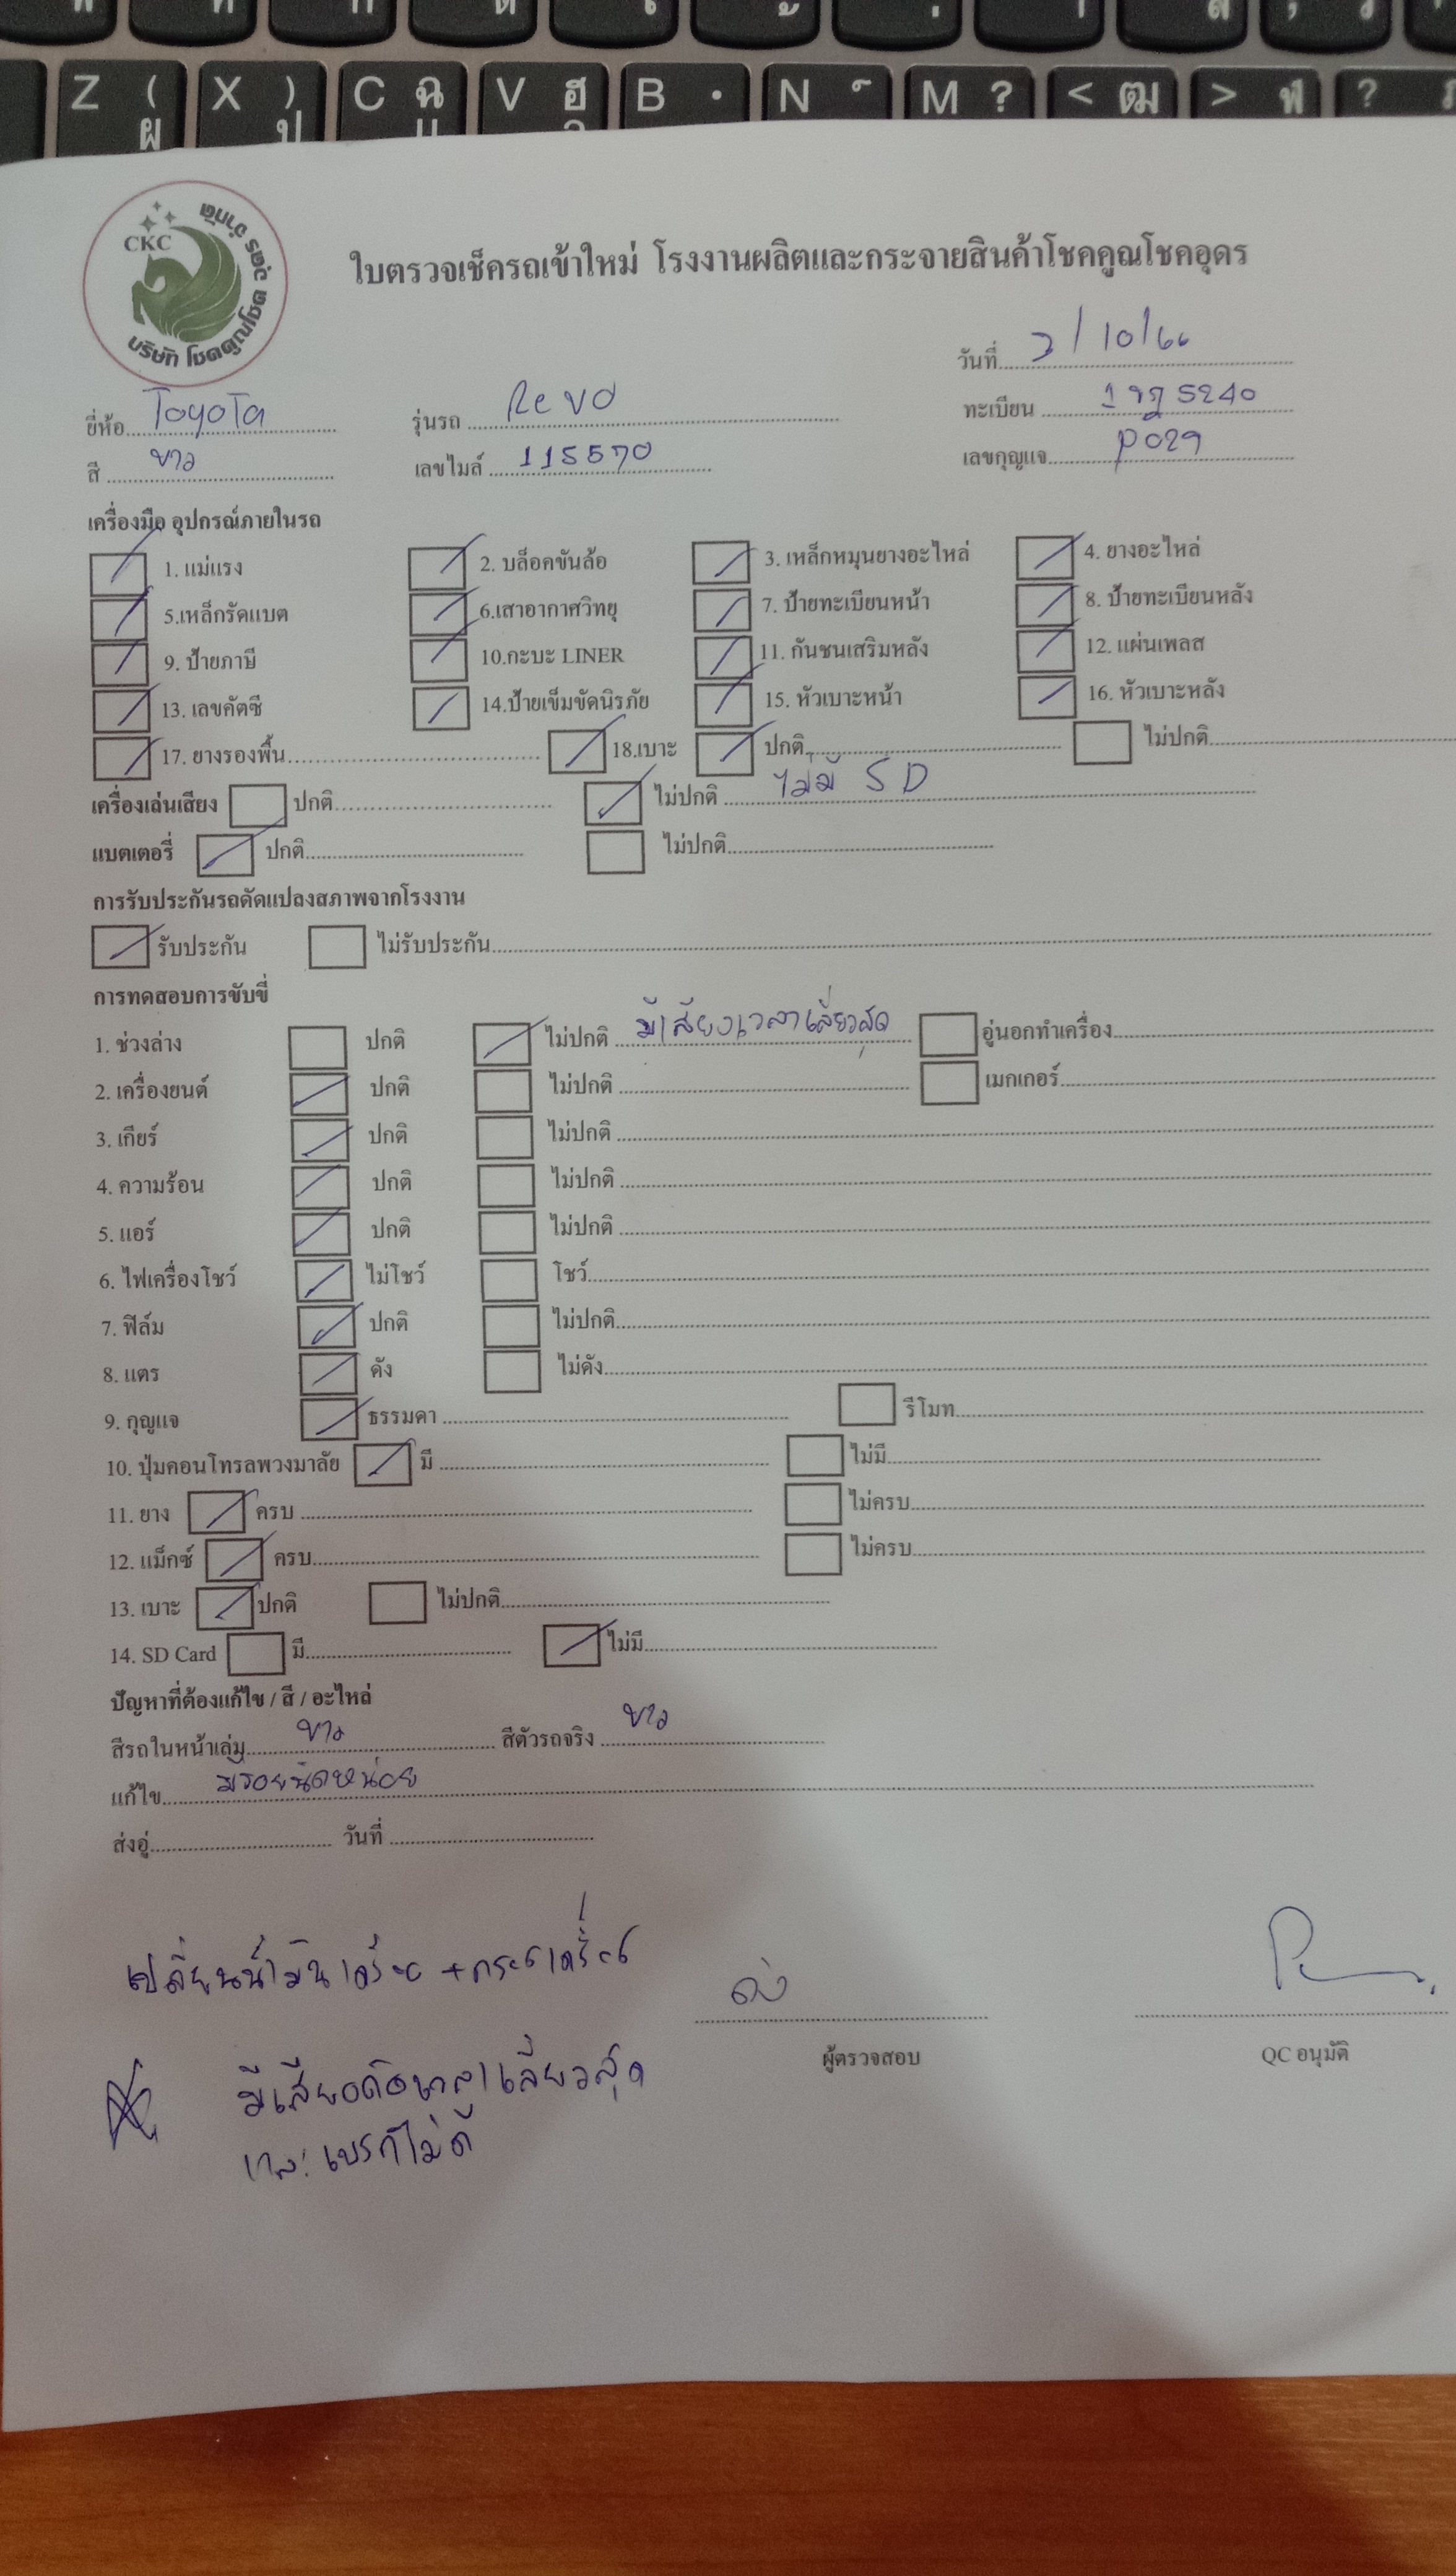 Z ( ผ X ) ป C ฉ แ V ฮ B . N M ? < ฒ > ฬ ?
CKC
บริษัท โชคคูณโชค อุดร จำกัด
ใบตรวจเช็ครถเข้าใหม่ โรงงานผลิตและกระจายสินค้าโชคคูณโชคอุดร
วันที่ 2/10/66
ยี่ห้อ Toyota รุ่นรถ Revo ทะเบียน 5240
สี ขาว เลขไมล์ 115570 เลขกุญแจ P029
เครื่องมือ อุปกรณ์ภายในรถ
1. แม่แรง 2. บล็อคขันล้อ 3. เหล็กหมุนยางอะไหล่ 4. ยางอะไหล่
5.เหล็กรัดแบต 6.เสาอากาศวิทยุ 7. ป้ายทะเบียนหน้า 8. ป้ายทะเบียนหลัง
9. ป้ายภาษี 10.กะบะ LINER 11. กันชนเสริมหลัง 12. แผ่นเพลส
13. เลขคัตซี 14.ป้ายเข็มขัดนิรภัย 15. หัวเบาะหน้า 16. หัวเบาะหลัง
17. ยางรองพื้น 18.เบาะ ปกติ ไม่ปกติ
เครื่องเล่นเสียง ปกติ ไม่ปกติ ไม่มี SD
แบตเตอรี่ ปกติ ไม่ปกติ
การรับประกันรถดัดแปลงสภาพจากโรงงาน
รับประกัน ไม่รับประกัน
การทดสอบการขับขี่
1. ช่วงล่าง ปกติ ไม่ปกติ มีเสียงเวลาเลี้ยวสุด อู่นอกทำเครื่อง
2. เครื่องยนต์ ปกติ ไม่ปกติ เมกเกอร์
3. เกียร์ ปกติ ไม่ปกติ
4. ความร้อน ปกติ ไม่ปกติ
5. แอร์ ปกติ ไม่ปกติ
6. ไฟเครื่องโชว์ ไม่โชว์ โชว์
7. ฟิล์ม ปกติ ไม่ปกติ
8. แตร ดัง ไม่ดัง
9. กุญแจ ธรรมดา รีโมท
10. ปุ่มคอนโทรลพวงมาลัย มี ไม่มี
11. ยาง ครบ ไม่ครบ
12. แม็กซ์ ครบ ไม่ครบ
13. เบาะ ปกติ ไม่ปกติ
14. SD Card มี ไม่มี
ปัญหาที่ต้องแก้ไข / สี / อะไหล่
สีรถในหน้าเล่ม ขาว สีตัวรถจริง ขาว
แก้ไข มีรอยนิดหน่อย
ส่งอู่ วันที่
เปลี่ยนน้ำมันเครื่อง +กรองเครื่อง
ผู้ตรวจสอบ QC อนุมัติ
มีเสียงดังเวลาเลี้ยวสุด
และเบรกไม่ดี